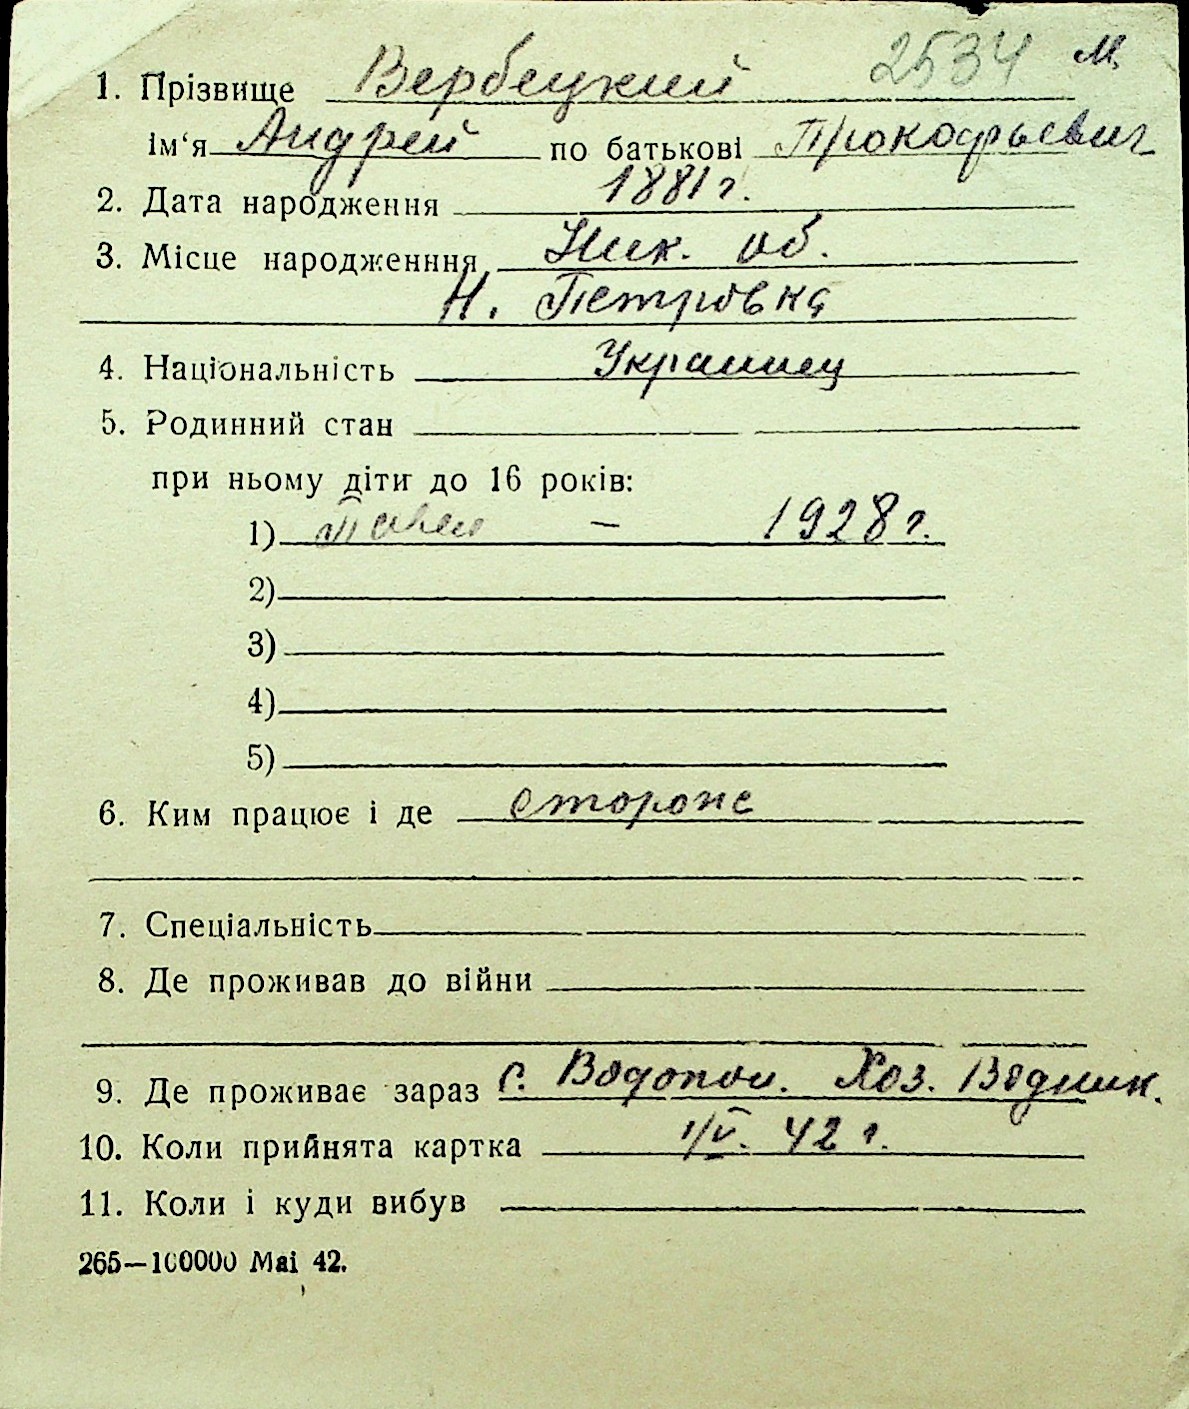 2534 М.
1. Прізвище Вербецкий
ім‘я Андрей по батькові Прокофьевич
2. Дата народження 1881 г.
3. Місце народженння Ник. об.
Н. Петровка
4. Національність Украинец
5. Родинний стан
при ньому діти до 16 років:
1) Павел — 1928 г.
2)
3)
4)
5)
6. Ким працює і де сторож
7. Спеціальність
8. Де проживав до війни
9. Де проживає зараз с. Водопои. Хоз. Водник.
10. Коли прийнята картка 1/V. 42 г.
11. Коли і куди вибув
265—100000 Маі 42.